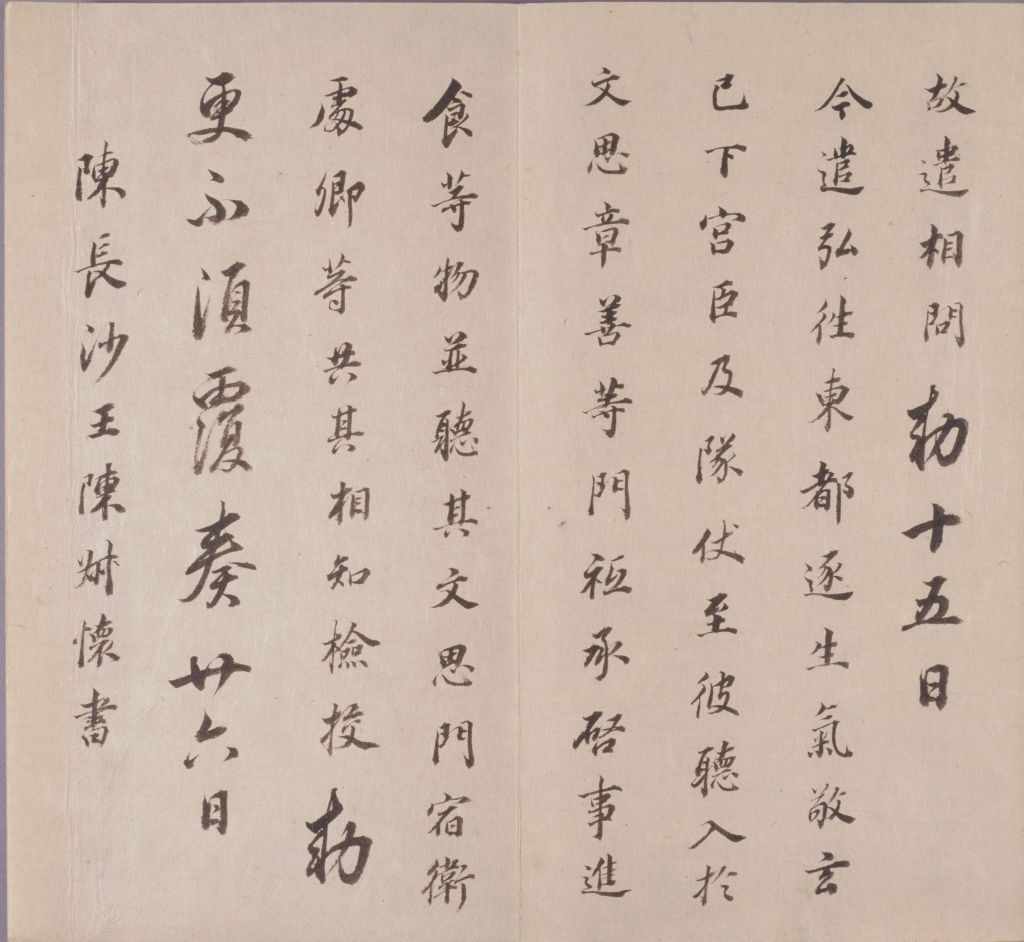 故遣相問勅十五日
今遣弘往東都逐生氣敬玄
已下宮臣及隊仗至彼聽入於
文思章善等門祗承啓事進
食等物並聽其文思門宿衛
處卿等共其相知檢挍勅
更不須覆奏廿六日
陳長沙王陳叔懷書